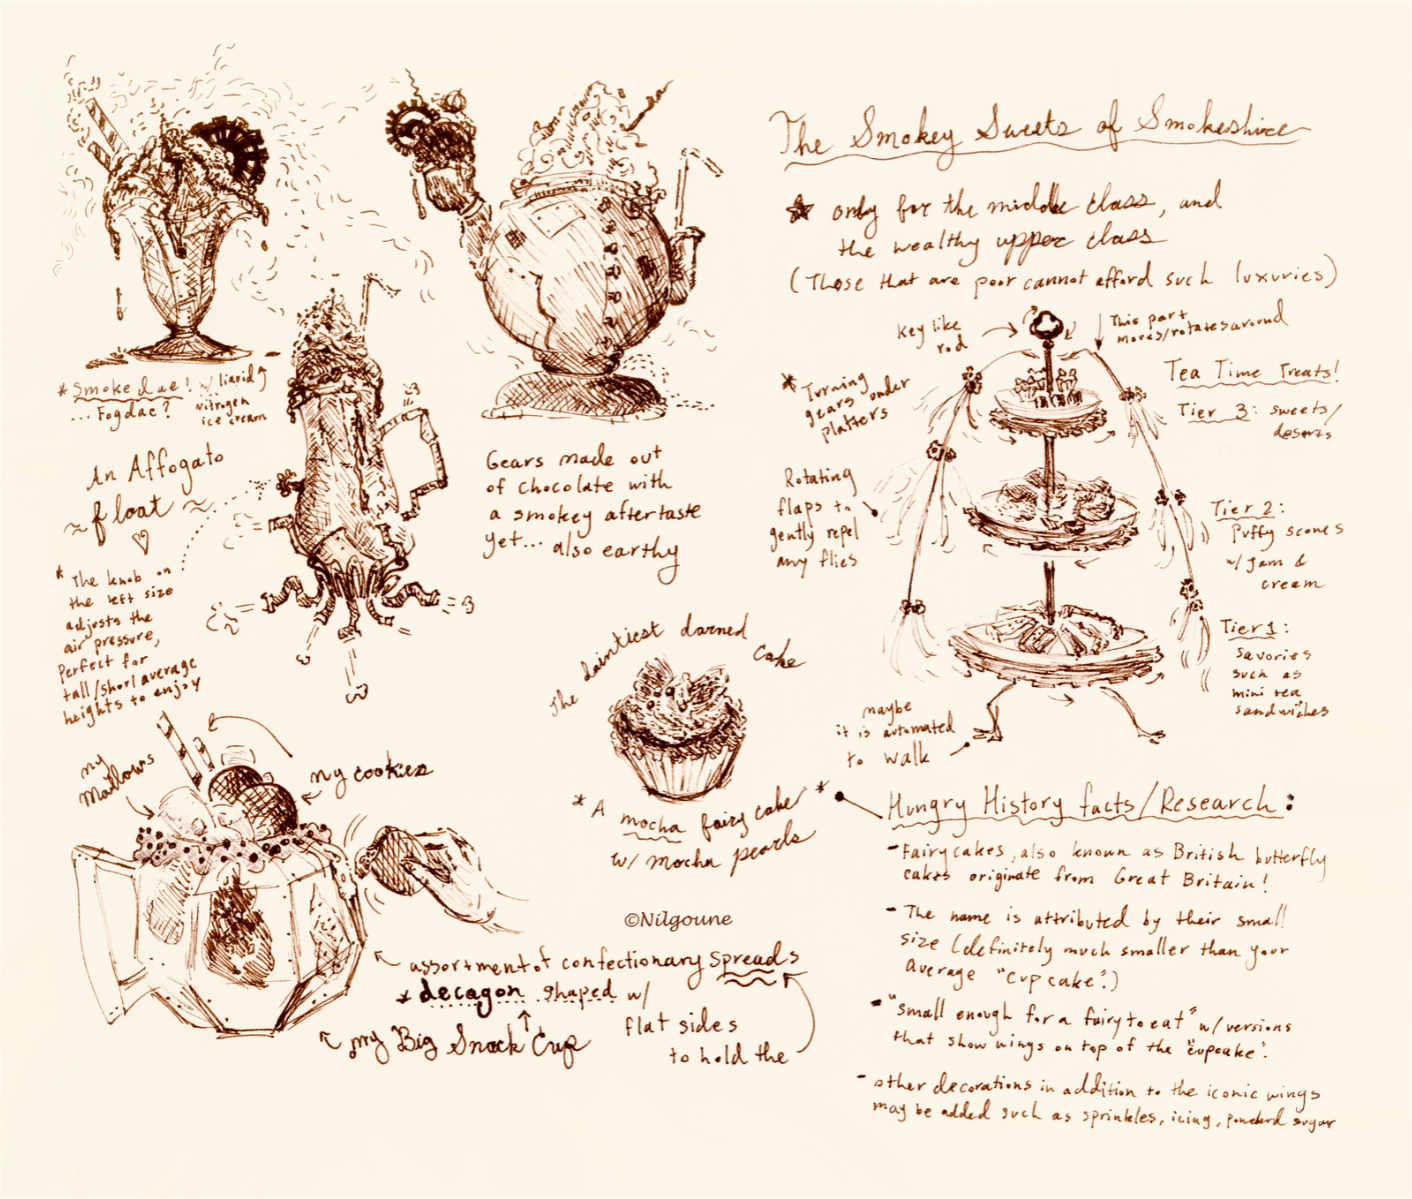 The Smokey Sweets of Smokeshire
☆ only for the middle class, and
the wealthy upper class
(Those that are poor cannot afford such luxuries)
key like
rod
This part
moves/rotates around
* Turning
gears under
platters
Rotating
flaps to
gently repel
any flies
Tea Time Treats!
Tier 3: sweets/
deserts
Tier 2:
Puffy scones
w/ Jam &
cream
Tier 1:
savories
such as
mini tea
sandwiches
maybe
it is automated
to walk
* Smokedae! w/ liquid
... Fogdae? Nitrogen
ice cream
An Affogato
~ float ~
♡
* The knob on
the left size
adjusts the
air pressure,
Perfect for
tall/short/average
heights to enjoy
Gears made out
of chocolate with
a smokey aftertaste
yet... also earthy
The daintiest darned
cake
* A mocha fairy cake *
w/ mocha pearls
my
Mallows
my cookies
©Nilgoune
assortment of confectionary spreads
* decagon shaped w/
flat sides
to hold the
my Big Snack Cup
Hungry History facts/Research:
- Fairycakes, also known as British butterfly
cakes originate from Great Britain!
- The name is attributed by their small
size (definitely much smaller than your
average "cupcake".)
- "small enough for a fairy to eat" w/ versions
that show wings on top of the "cupcake".
- other decorations in addition to the iconic wings
may be added such as sprinkles, icing, powderd sugar